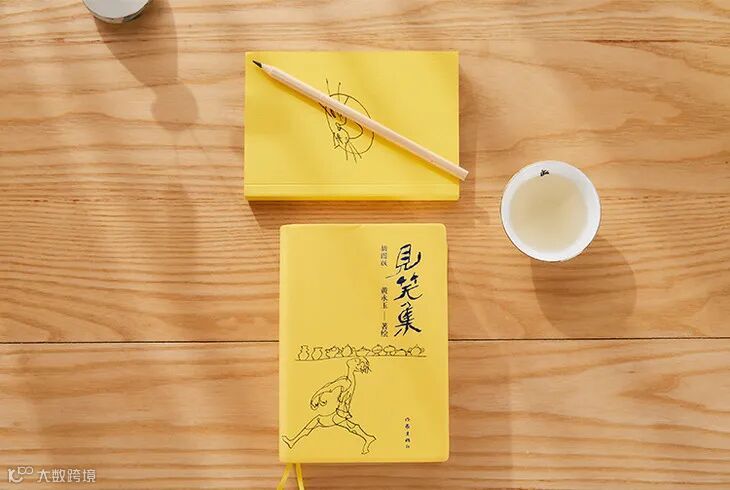 见笑集
插图版
黄永玉——著绘
作家出版社
大数跨境